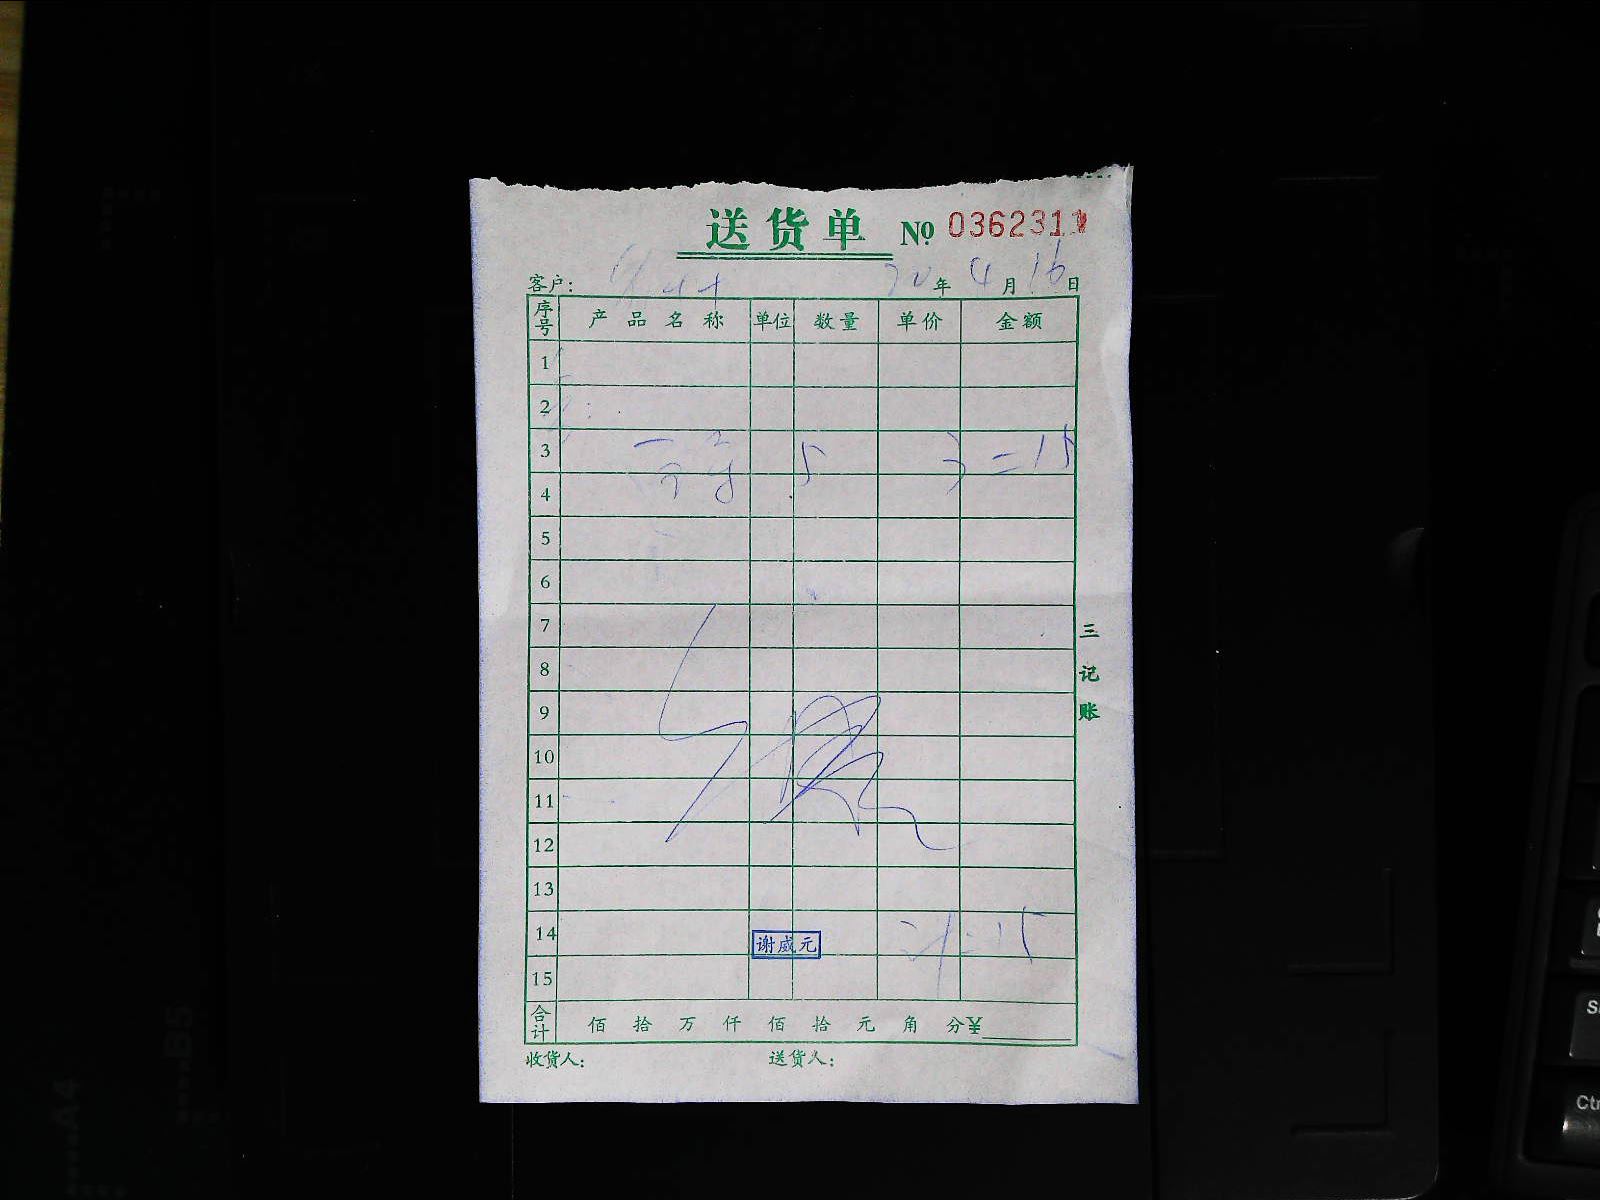 送货单 No 0362311
客户: 20年4月16日
序号 产品名称 单位 数量 单价 金额
1
2
3 5 3 =15
4
5
6
7
8
9
10
11
12
13
14 谢威元 计:15
15
合计 佰 拾 万 仟 佰 拾 元 角 分¥
收货人: 送货人:
三记账
A4
B5
Ctr